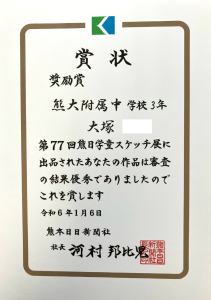 賞状
奨励賞
熊大附属中学校3年
大塚
第77回熊日学童スケッチ展に
出品されたあなたの作品は審査
の結果優秀でありましたので
これを賞します
令和6年1月6日
熊本日日新聞社
社長 河村邦比児